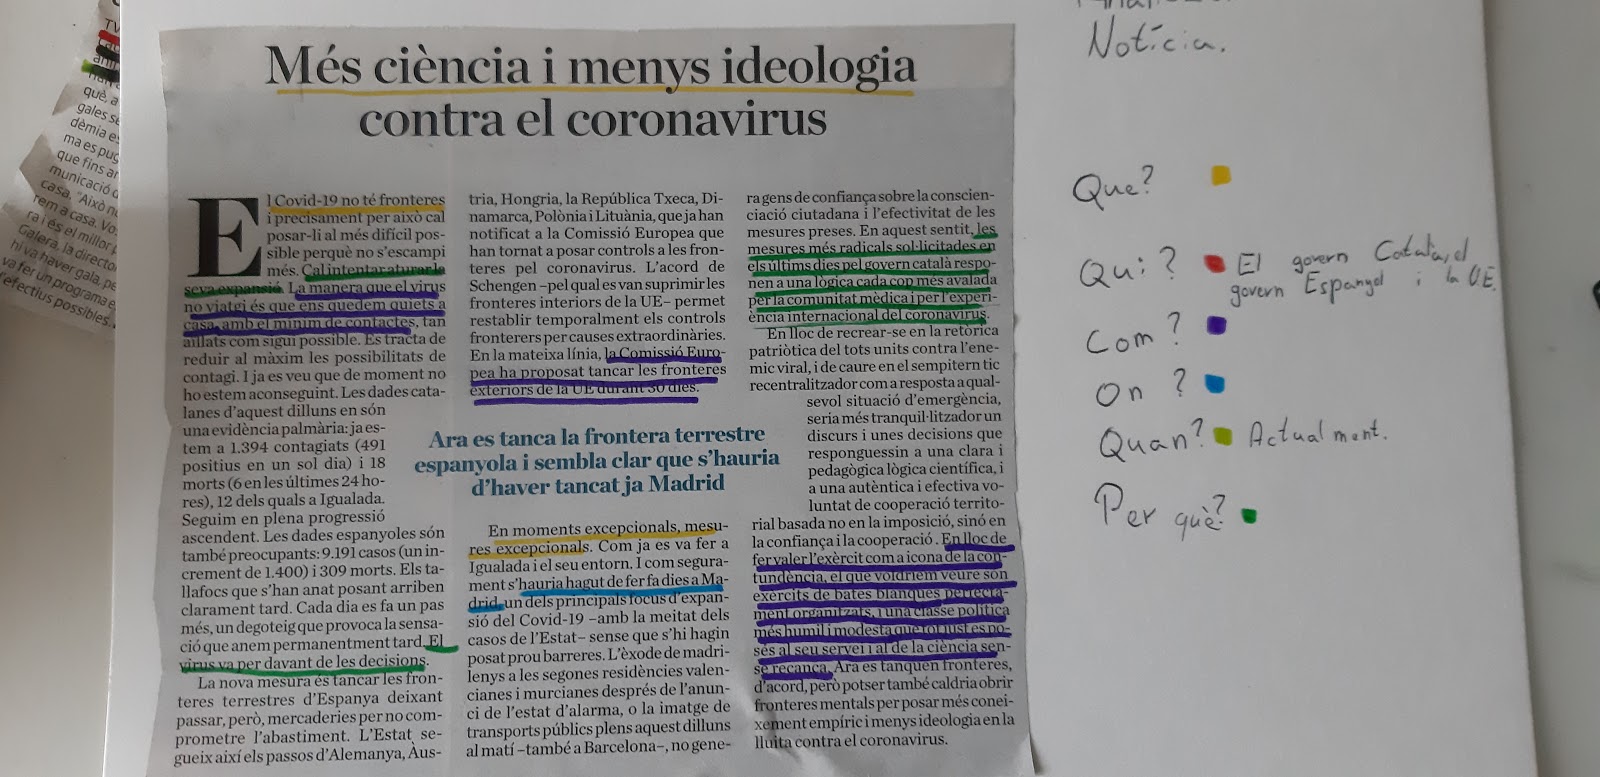 Més ciència i menys ideologia
contra el coronavirus
El Covid-19 no té fronteres
i precisament per això cal
posar-li al més difícil pos-
sible perquè no s'escampi
més. Cal intentar aturar la
seva expansió. La manera que el virus
no viatgi és que ens quedem quiets a
casa, amb el mínim de contactes, tan
aïllats com sigui possible. Es tracta de
reduir al màxim les possibilitats de
contagi. I ja es veu que de moment no
ho estem aconseguint. Les dades cata-
lanes d'aquest dilluns en són
una evidència palmària: ja es-
tem a 1.394 contagiats (491
positius en un sol dia) i 18
morts (6 en les últimes 24 ho-
res), 12 dels quals a Igualada.
Seguim en plena progressió
ascendent. Les dades espanyoles són
també preocupants: 9.191 casos (un in-
crement de 1.400) i 309 morts. Els ta-
llafocs que s'han anat posant arriben
clarament tard. Cada dia es fa un pas
més, un degoteig que provoca la sensa-
ció que anem permanentment tard. El
virus va per davant de les decisions.
La nova mesura és tancar les fron-
teres terrestres d'Espanya deixant
passar, però, mercaderies per no com-
prometre l'abastiment. L'Estat se-
gueix així els passos d'Alemanya, Àus-
tria, Hongria, la República Txeca, Di-
namarca, Polònia i Lituània, que ja han
notificat a la Comissió Europea que
han tornat a posar controls a les fron-
teres pel coronavirus. L'acord de
Schengen –pel qual es van suprimir les
fronteres interiors de la UE– permet
restablir temporalment els controls
fronterers per causes extraordinàries.
En la mateixa línia, la Comissió Euro-
pea ha proposat tancar les fronteres
exteriors de la UE durant 30 dies.
Ara es tanca la frontera terrestre
espanyola i sembla clar que s'hauria
d'haver tancat ja Madrid
En moments excepcionals, mesu-
res excepcionals. Com ja es va fer a
Igualada i el seu entorn. I com segura-
ment s'hauria hagut de fer fa dies a Ma-
drid, un dels principals focus d'expan-
sió del Covid-19 –amb la meitat dels
casos de l'Estat– sense que s'hi hagin
posat prou barreres. L'èxode de madri-
lenys a les segones residències valen-
cianes i murcianes després de l'anun-
ci de l'estat d'alarma, o la imatge de
transports públics plens aquest dilluns
al matí –també a Barcelona–, no gene-
ra gens de confiança sobre la conscien-
ciació ciutadana i l'efectivitat de les
mesures preses. En aquest sentit, les
mesures més radicals sol·licitades en
els últims dies pel govern català respo-
nen a una lògica cada cop més avalada
per la comunitat mèdica i per l'experi-
ència internacional del coronavirus.
En lloc de recrear-se en la retòrica
patriòtica del tots units contra l'ene-
mic viral, i de caure en el sempitern tic
recentralitzador com a resposta a qual-
sevol situació d'emergència,
seria més tranquil·litzador un
discurs i unes decisions que
responguessin a una clara i
pedagògica lògica científica, i
a una autèntica i efectiva vo-
luntat de cooperació territo-
rial basada no en la imposició, sinó en
la confiança i la cooperació. En lloc de
fer valer l'exèrcit com a icona de la con-
tundència, el que voldríem veure són
exèrcits de bates blanques perfecta-
ment organitzats, i una classe política
més humil i modesta que tot just es po-
sés al seu servei i al de la ciència sen-
se recança. Ara es tanquen fronteres,
d'acord, però potser també caldria obrir
fronteres mentals per posar més conei-
xement empíric i menys ideologia en la
lluita contra el coronavirus.
Notícia.
Que?
Qui? El govern Català, el
govern Espanyol i la U.E.
Com?
On?
Quan? Actualment.
Per què?
què, a
gales se
dèmia es
ma es pug
que fins ar
municació d
casa. "Això n
rem a casa. Vo
ra i és el millor
Galera, la director
hi va haver gala, pe
va fer un programa e
efectius possibles.